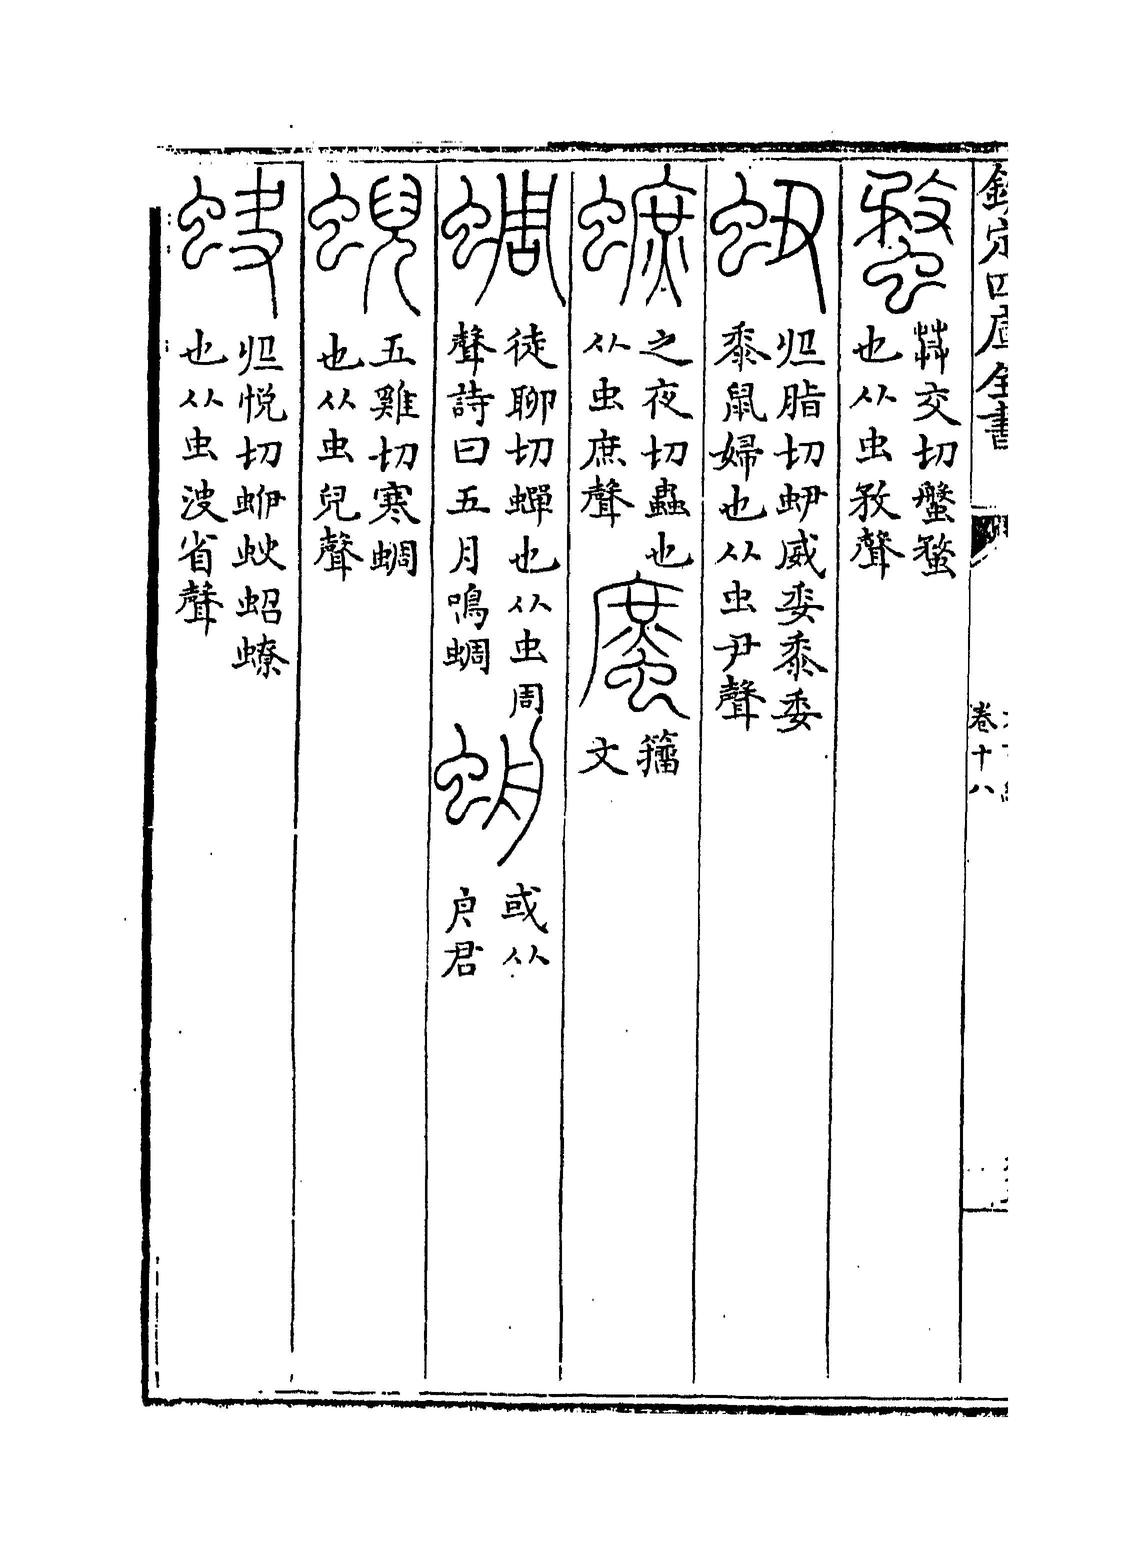 欽定四庫全書
卷十八
蝥
茻交切盤蝥
也从虫敄聲
蛜
脂切蛜威委黍委
黍鼠婦也从虫尹聲
蟅
之夜切蟲也
从虫庶聲
籒
文
蜩
徒聊切蟬也从虫周
聲詩曰五月鳴蜩
或从
君
蜺
五雞切寒蜩
也从虫兒聲
蚗
悦切蛜蚗蛁蟟
也从虫省聲